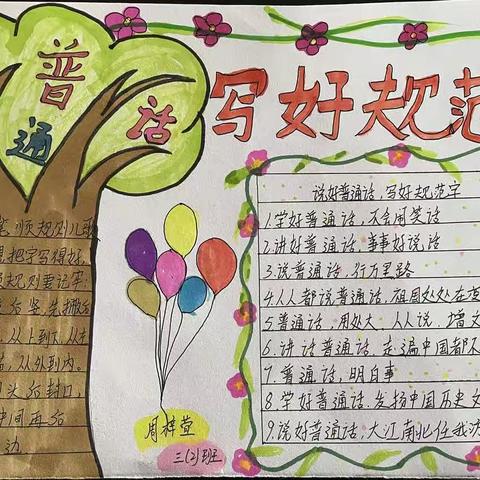 普通话
写好规范
笔顺规则儿歌
把字写得好,
规则要记牢
后竖,先撇后
从上到下,从左
右,从外到内。
头后封口,
中间再后
边
周梓萱
三(2)班
说好普通话,写好规范字
1.学好普通话,不会闹笑话
2.讲好普通话,事事好说话
3.说普通话,行万里路
4.人人都说普通话,祖国处处在变
5.普通话,用处大,人人说,增文
6.讲话普通话,走遍中国都不
7.普通话,明白事
8.学好普通话,发扬中国历史文
9.说好普通话,大江南北任我